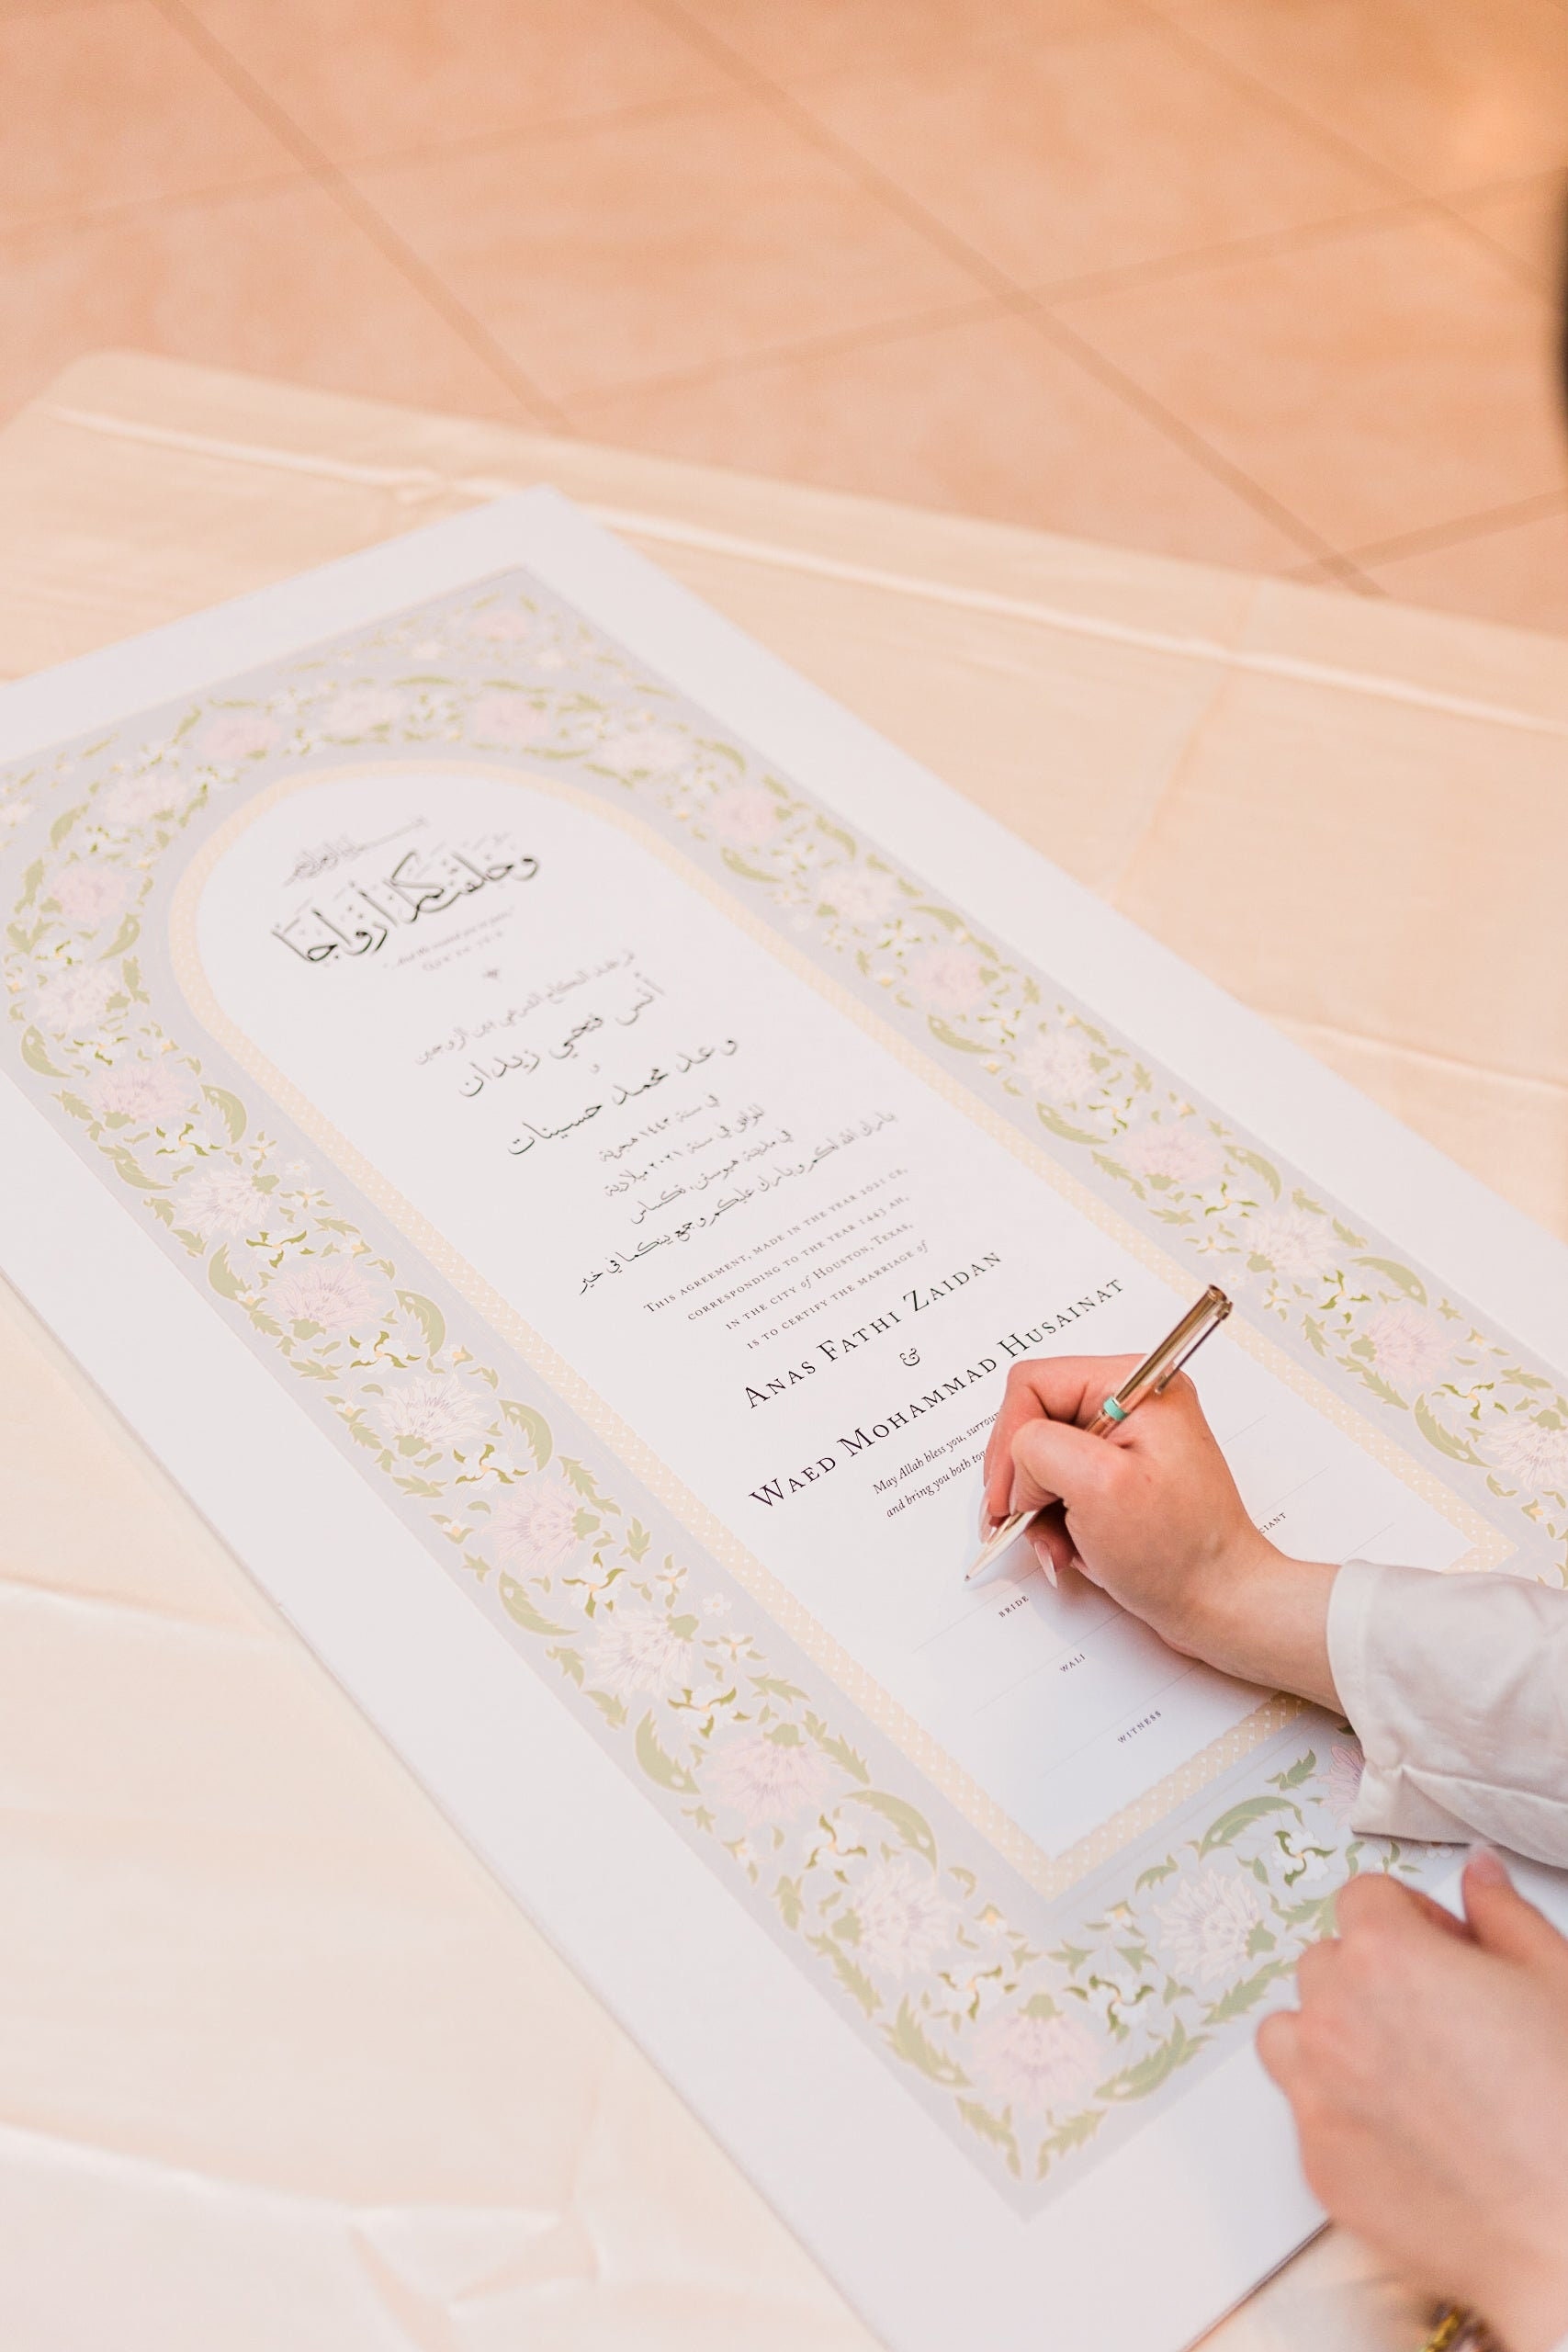 وَخَلَقْنَاكُمْ أَزْوَاجًا
تم عقد النكاح الشرعي بين الزوجين
أنس فتحي زيدان
و
وعد محمد حسينات
في سنة ١٤٤٣ هجرية
الموافق في سنة ٢٠٢١ ميلادية
في مدينة هيوستن، تكساس
بارك الله لكم وبارك عليكم وجمع بينكما في خير
THIS AGREEMENT, MADE IN THE YEAR 2021 CE,
CORRESPONDING TO THE YEAR 1443 AH,
IN THE CITY of HOUSTON, TEXAS,
IS TO CERTIFY THE MARRIAGE of
ANAS FATHI ZAIDAN
&
WAED MOHAMMAD HUSAINAT
May Allah bless you,
and bring you both
BRIDE
WALI
WITNESS